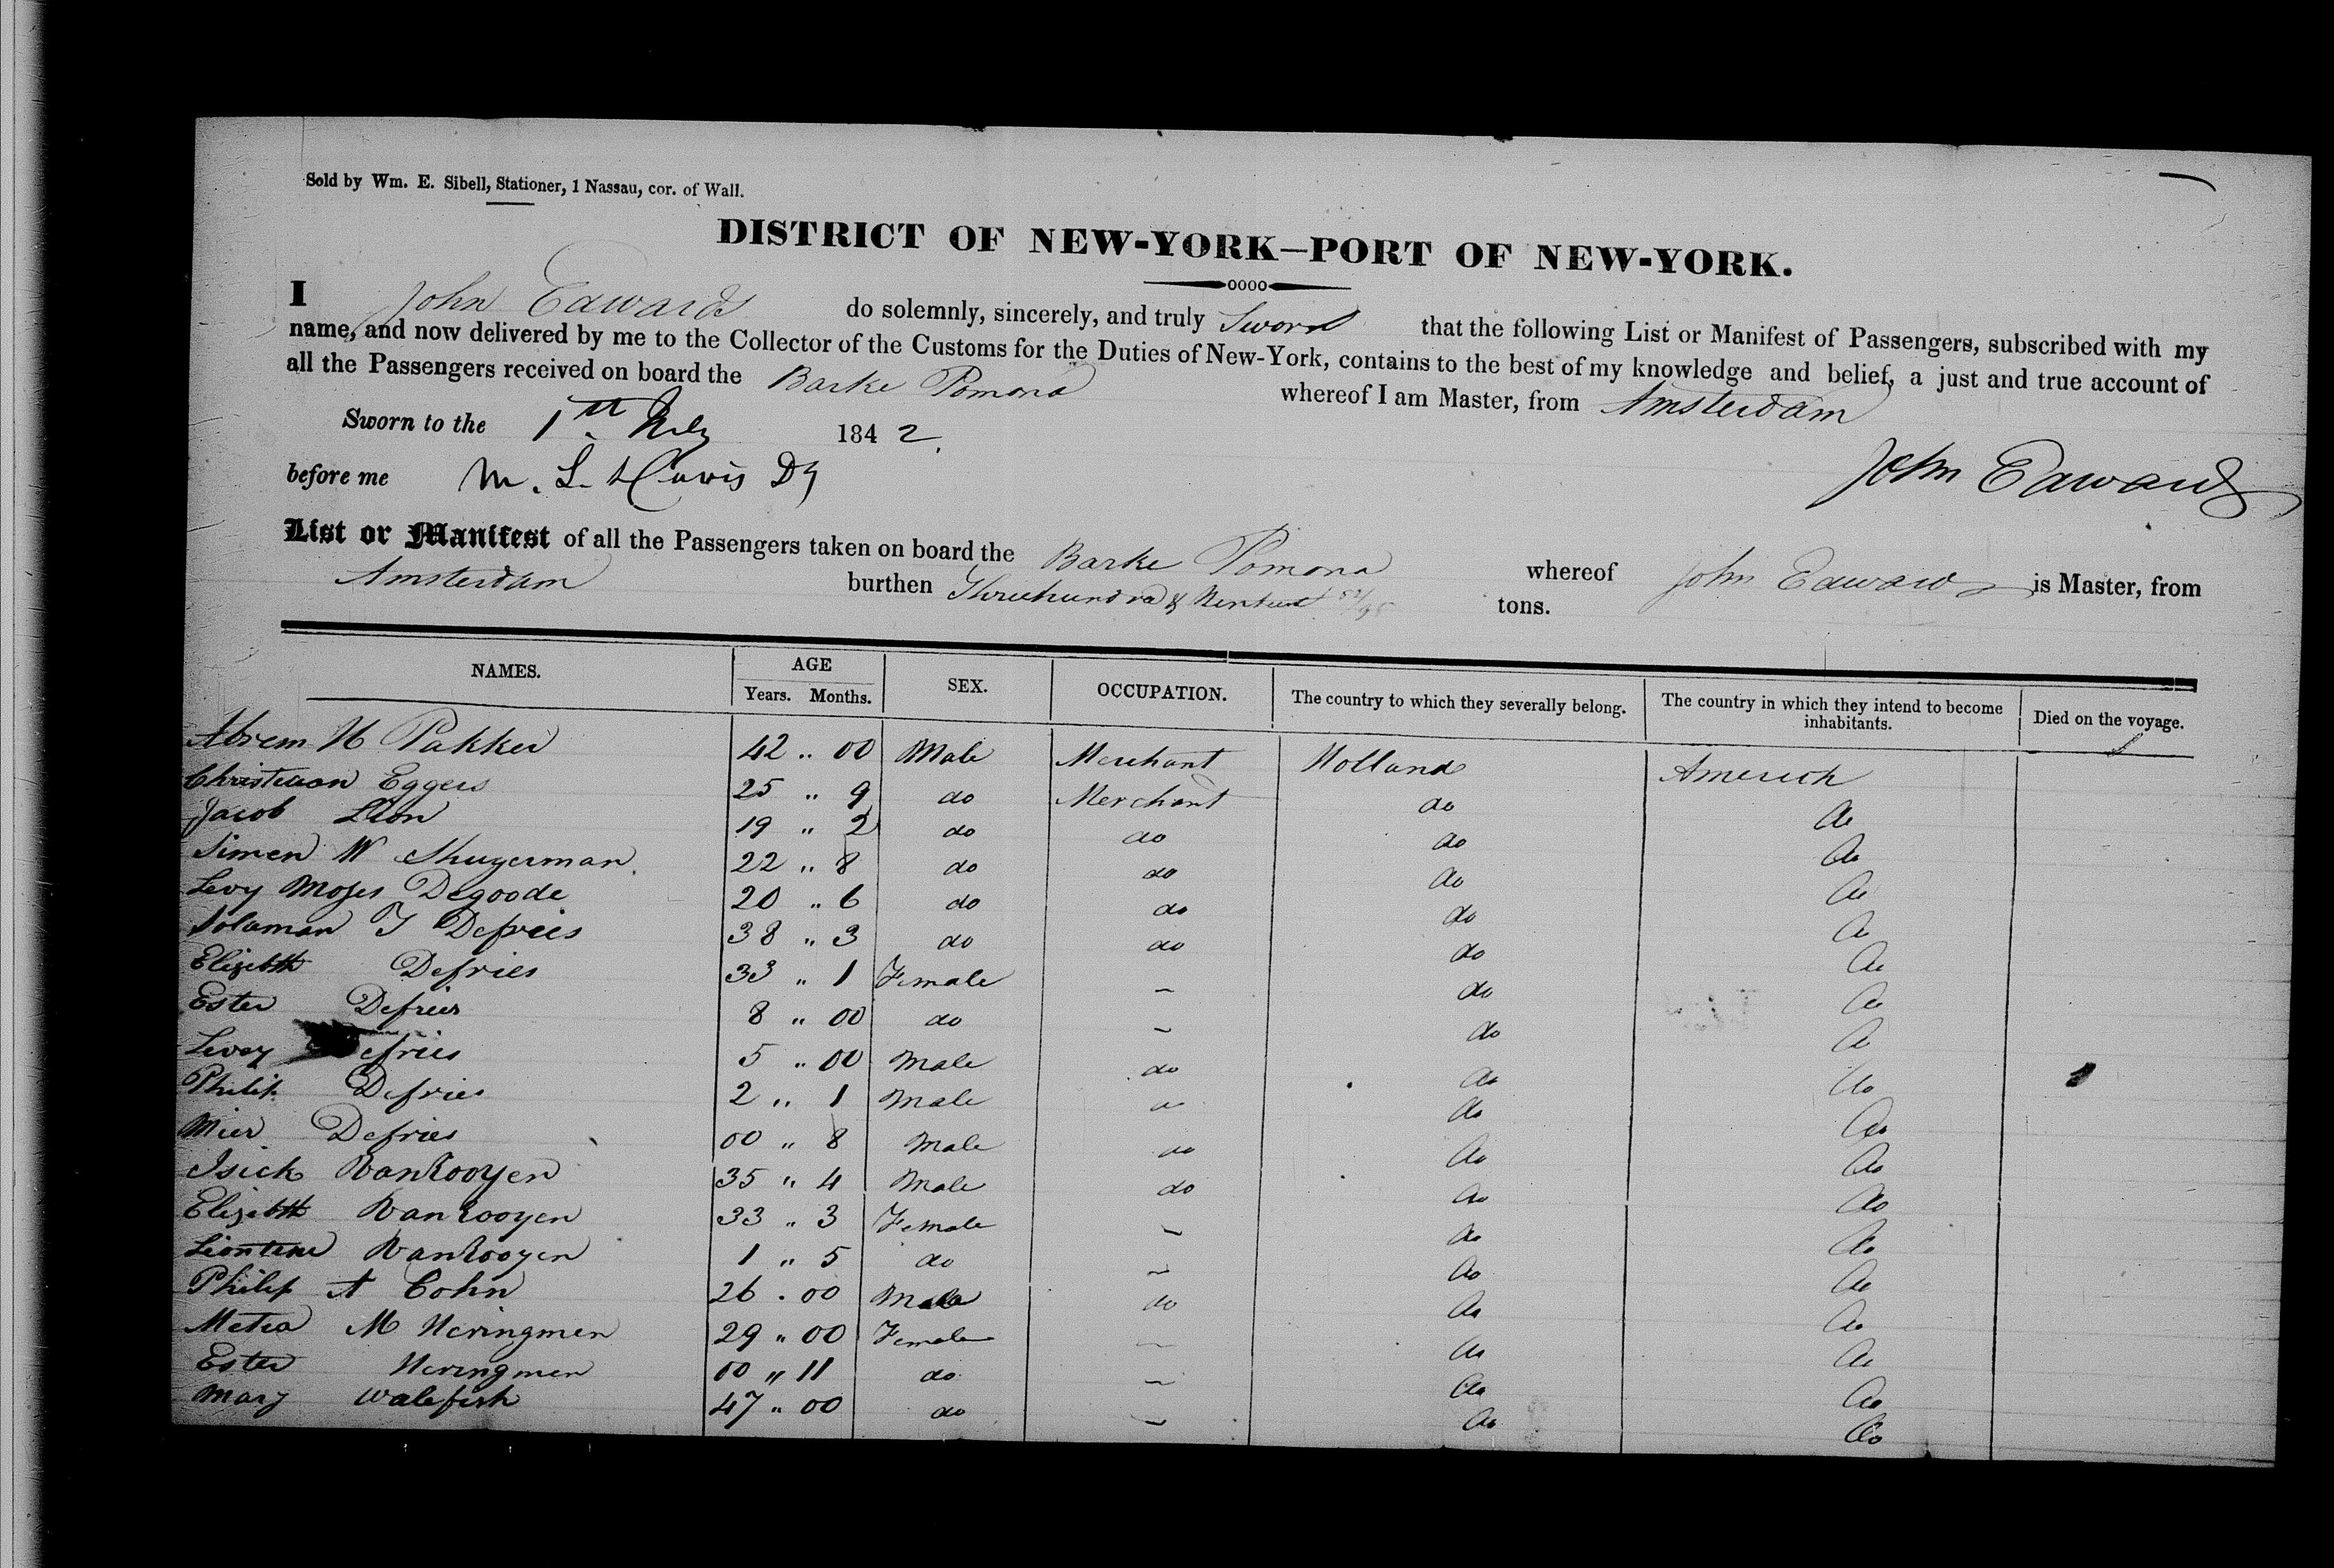 Sold by Wm. E. Sibell, Stationer, 1 Nassau, cor. of Wall.
DISTRICT OF NEW-YORK—PORT OF NEW-YORK.
I John Edwards do solemnly, sincerely, and truly Swear that the following List or Manifest of Passengers, subscribed with my
name, and now delivered by me to the Collector of the Customs for the Duties of New-York, contains to the best of my knowledge and belief, a just and true account of
all the Passengers received on board the Barke Pomona whereof I am Master, from Amsterdam
Sworn to the 1st 1842.
before me M. L. Davis Dy
John Edwards
List or Manifest of all the Passengers taken on board the Barke Pomona whereof John Edwards is Master, from
Amsterdam burthen Threehundrd & tons.
NAMES. AGE SEX. OCCUPATION. The country to which they severally belong. The country in which they intend to become inhabitants. Died on the voyage.
Years. Months.
Abrem H Pakker 42 " 00 Male Merchant Holland Americh
Christiaan Eggers 25 " 9 do Merchant do do
Jacob Leon 19 " 2 do do do do
Simen W Shuyerman 22 " 8 do do do do
Levy Moses Degoode 20 " 6 do do do do
Solaman J Defries 38 " 3 do do do do
Elizebth Defries 33 " 1 Female – do do
Ester Defries 8 " 00 do – do do
Levey Defries 5 " 00 Male do do do
Philip Defries 2 " 1 Male do do do
Mier Defries 00 " 8 Male do do do
Isick VanRooyen 35 " 4 Male do do do
Elizebth VanRooyen 33 " 3 Female – do do
VanRooyen 1 " 5 do – do do
Philip A Cohn 26 " 00 Male do do do
Metea M Neringmen 29 " 00 Female – do do
Ester Neringmen 00 " 11 do – do do
Mary Walefish 47 " 00 do – do do